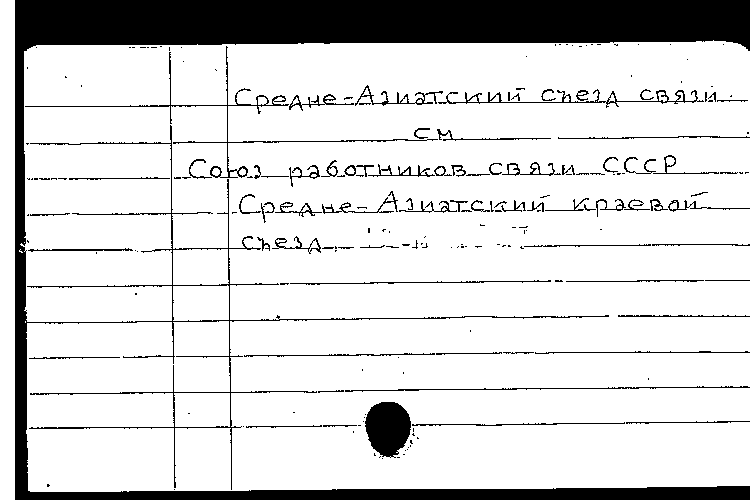 Средне-Азиатский съезд связи
см
Союз работников связи СССР
Средне-Азиатский краевой
съезд.